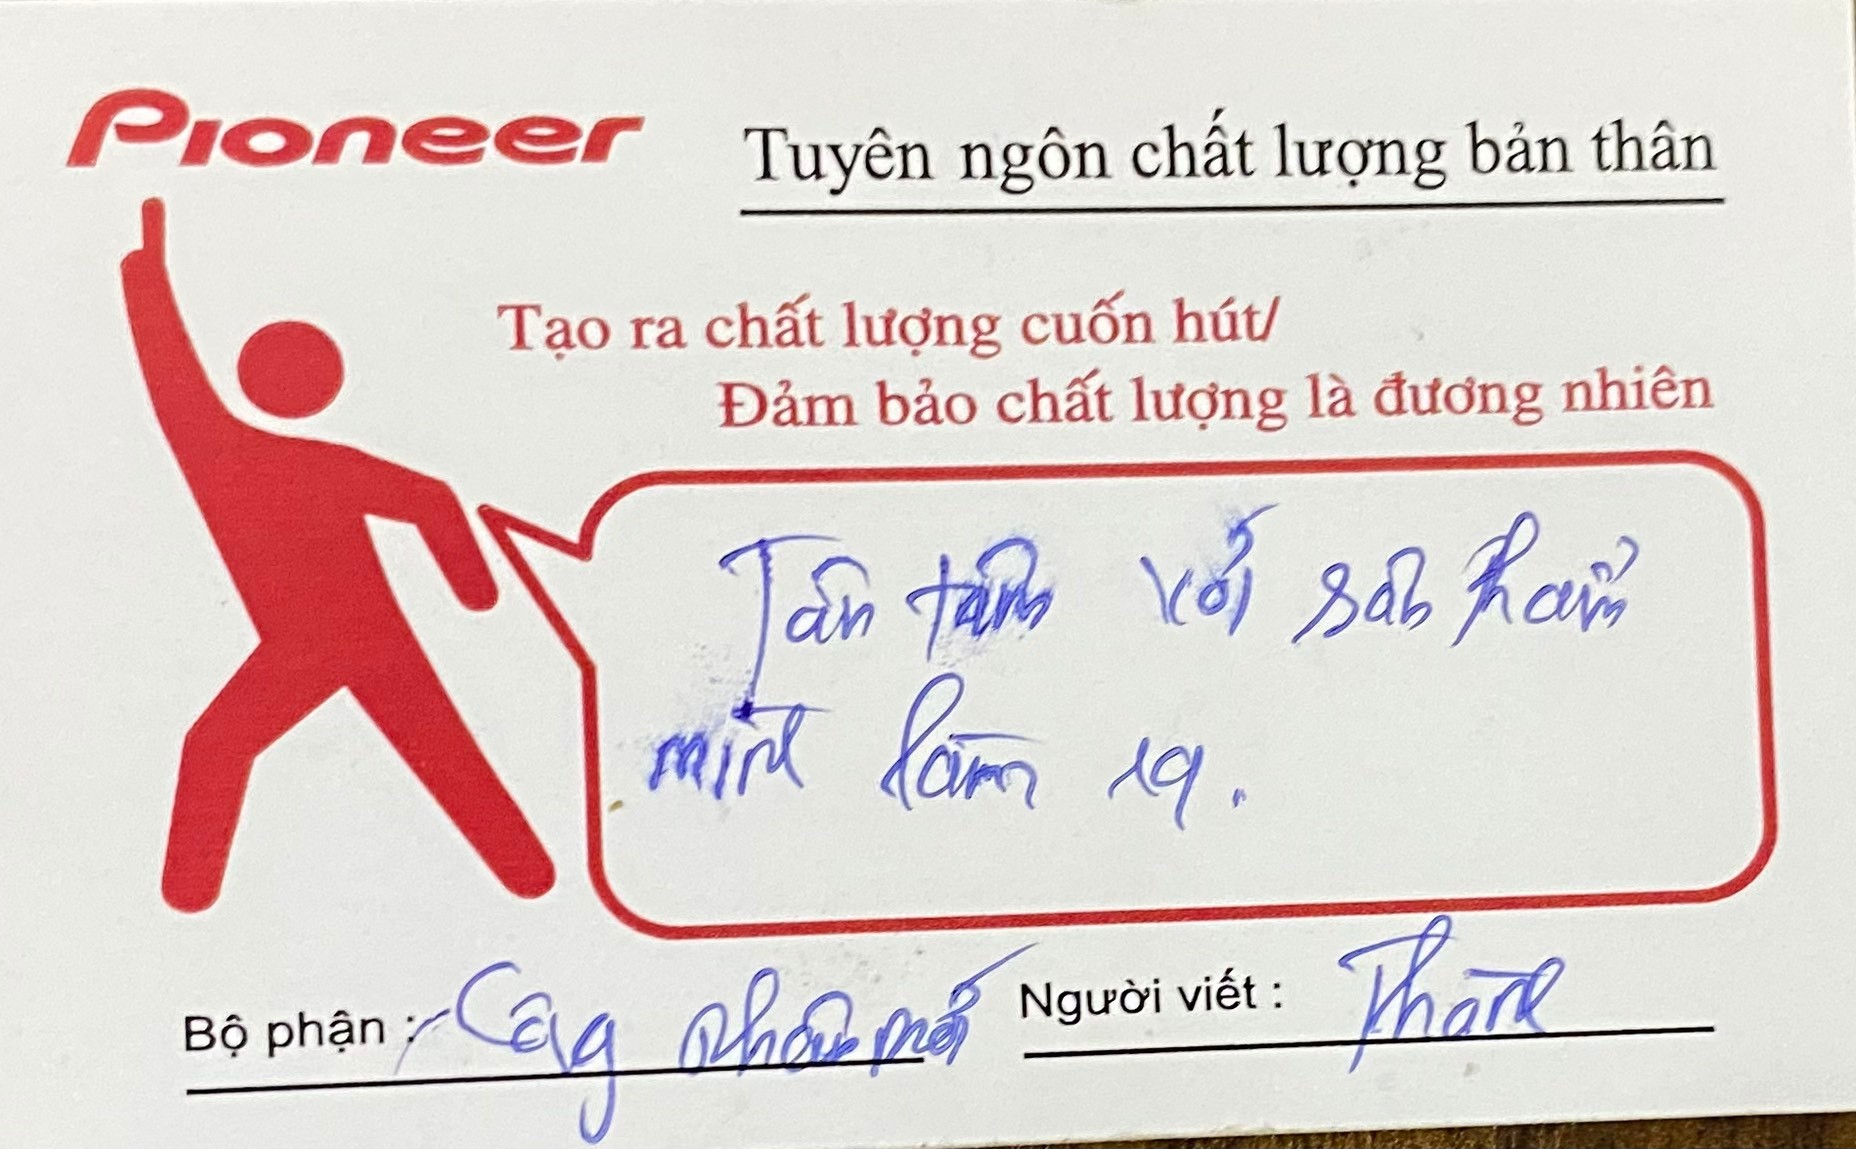 Pioneer
Tuyên ngôn chất lượng bản thân
Tạo ra chất lượng cuốn hút/
Đảm bảo chất lượng là đương nhiên
Tận tâm với sản phẩm
mình làm ra.
Bộ phận : Công nhân mới Người viết : Thành